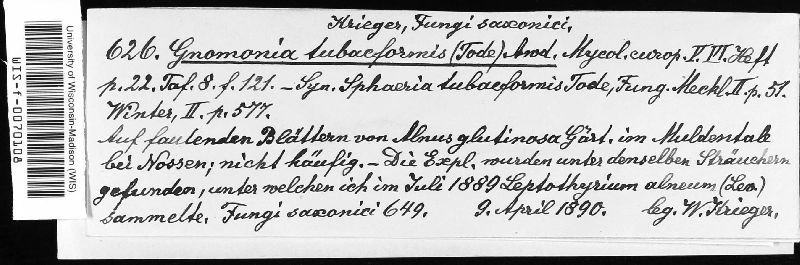 Krieger, Fungi saxonici.
626. Gnomonia tubaeformis (Tode) Awd. Mycol. europ. V. VI. Heft
p. 22. Taf. 8. f. 121. – Syn. Sphaeria tubaeformis Tode, Fung. Meckl. II. p. 51.
Winter, II. p. 577.
Auf faulenden Blättern von Alnus glutinosa Gärt. im Muldentale
bei Nossen; nicht häufig. – Die Expl. wurden unter denselben Sträuchern
gefunden, unter welchen ich im Juli 1889 Leptothyrium alneum (Lev.)
sammelte. Fungi saxonici 649. 9. April 1890. lg. W. Krieger.
University of Wisconsin-Madison (WIS)
WIS-f-0070108